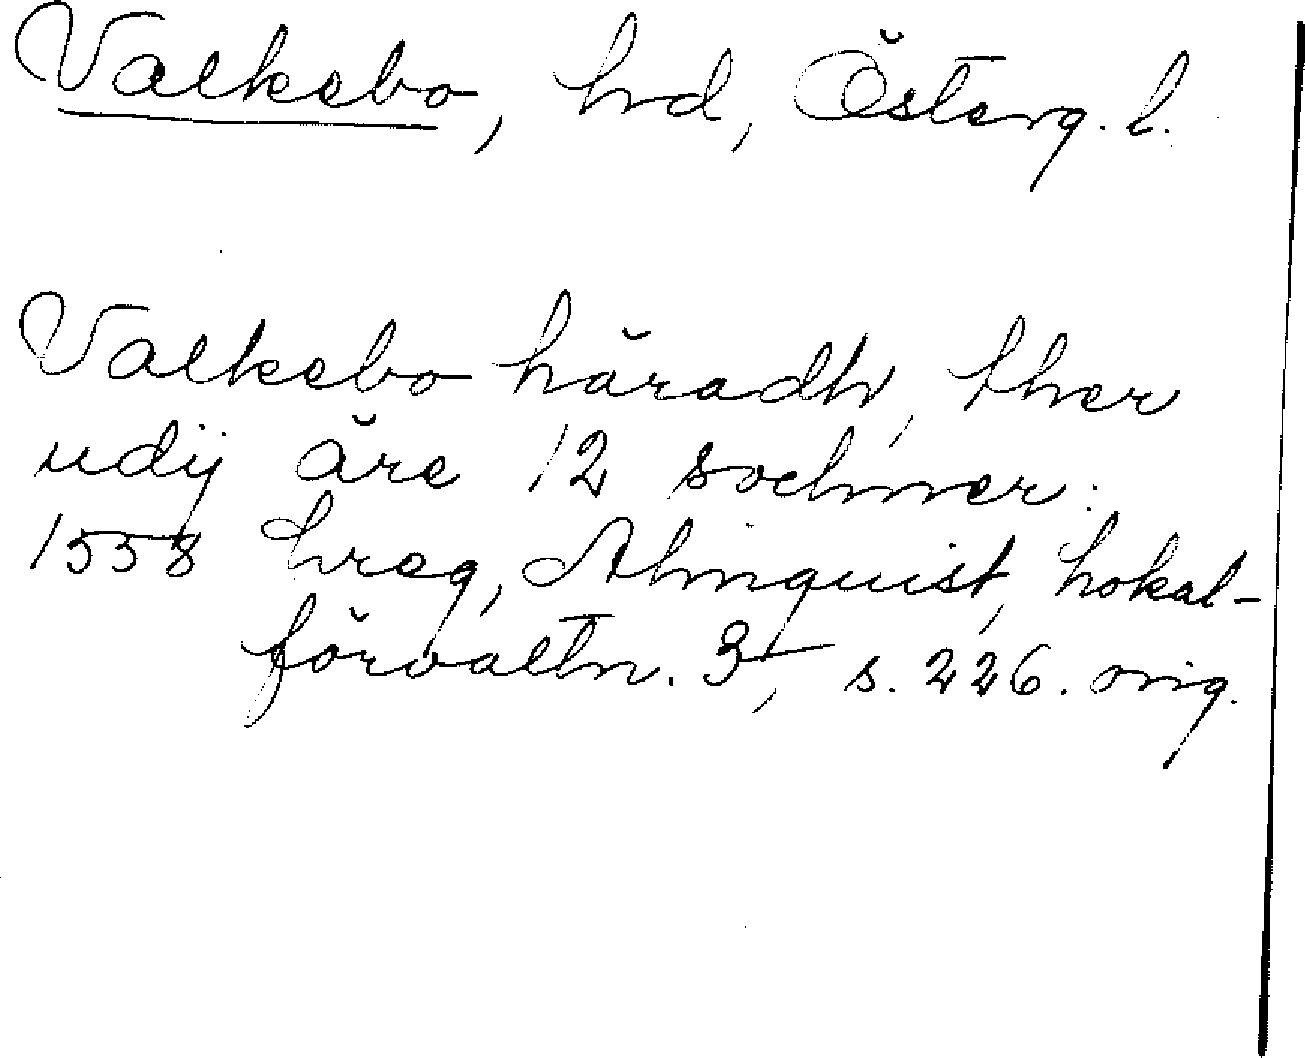 Valkebo, hd, Österg. l.
Valkebo häradh, ther
udij äre 12 sochner:
1558 hreg, Almquist, Lokal-
förvaltn. 3, s. 226. orig.